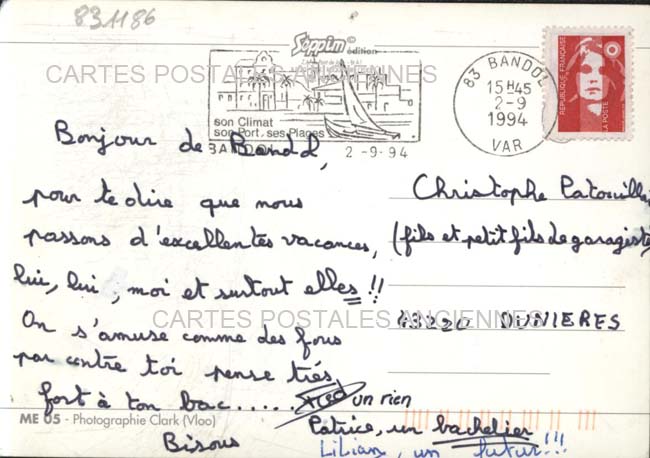 83.1186
Soppim édition
CARTES POSTALES ANCIENNES
son Climat
son Port, ses Plages
BANDOL 2-9-94
83 BANDOL
15H45
2-9
1994
VAR
REPUBLIQUE FRANÇAISE
LA POSTE
Bonjour de Bandol,
pour te dire que nous
passons d'excellentes vacances,
lui, lui, moi et surtout elles !!
On s'amuse comme des fous
par contre toi pense très
fort à ton bac.....
un rien
Patrice, un bachelier
Lilian, un futur !!!
Bisous
Christophe
(fils et petit fils de garagiste)
43220 DUNIERES
CARTES POSTALES ANCIENNES
ME 05 - Photographie Clark (Vloo)